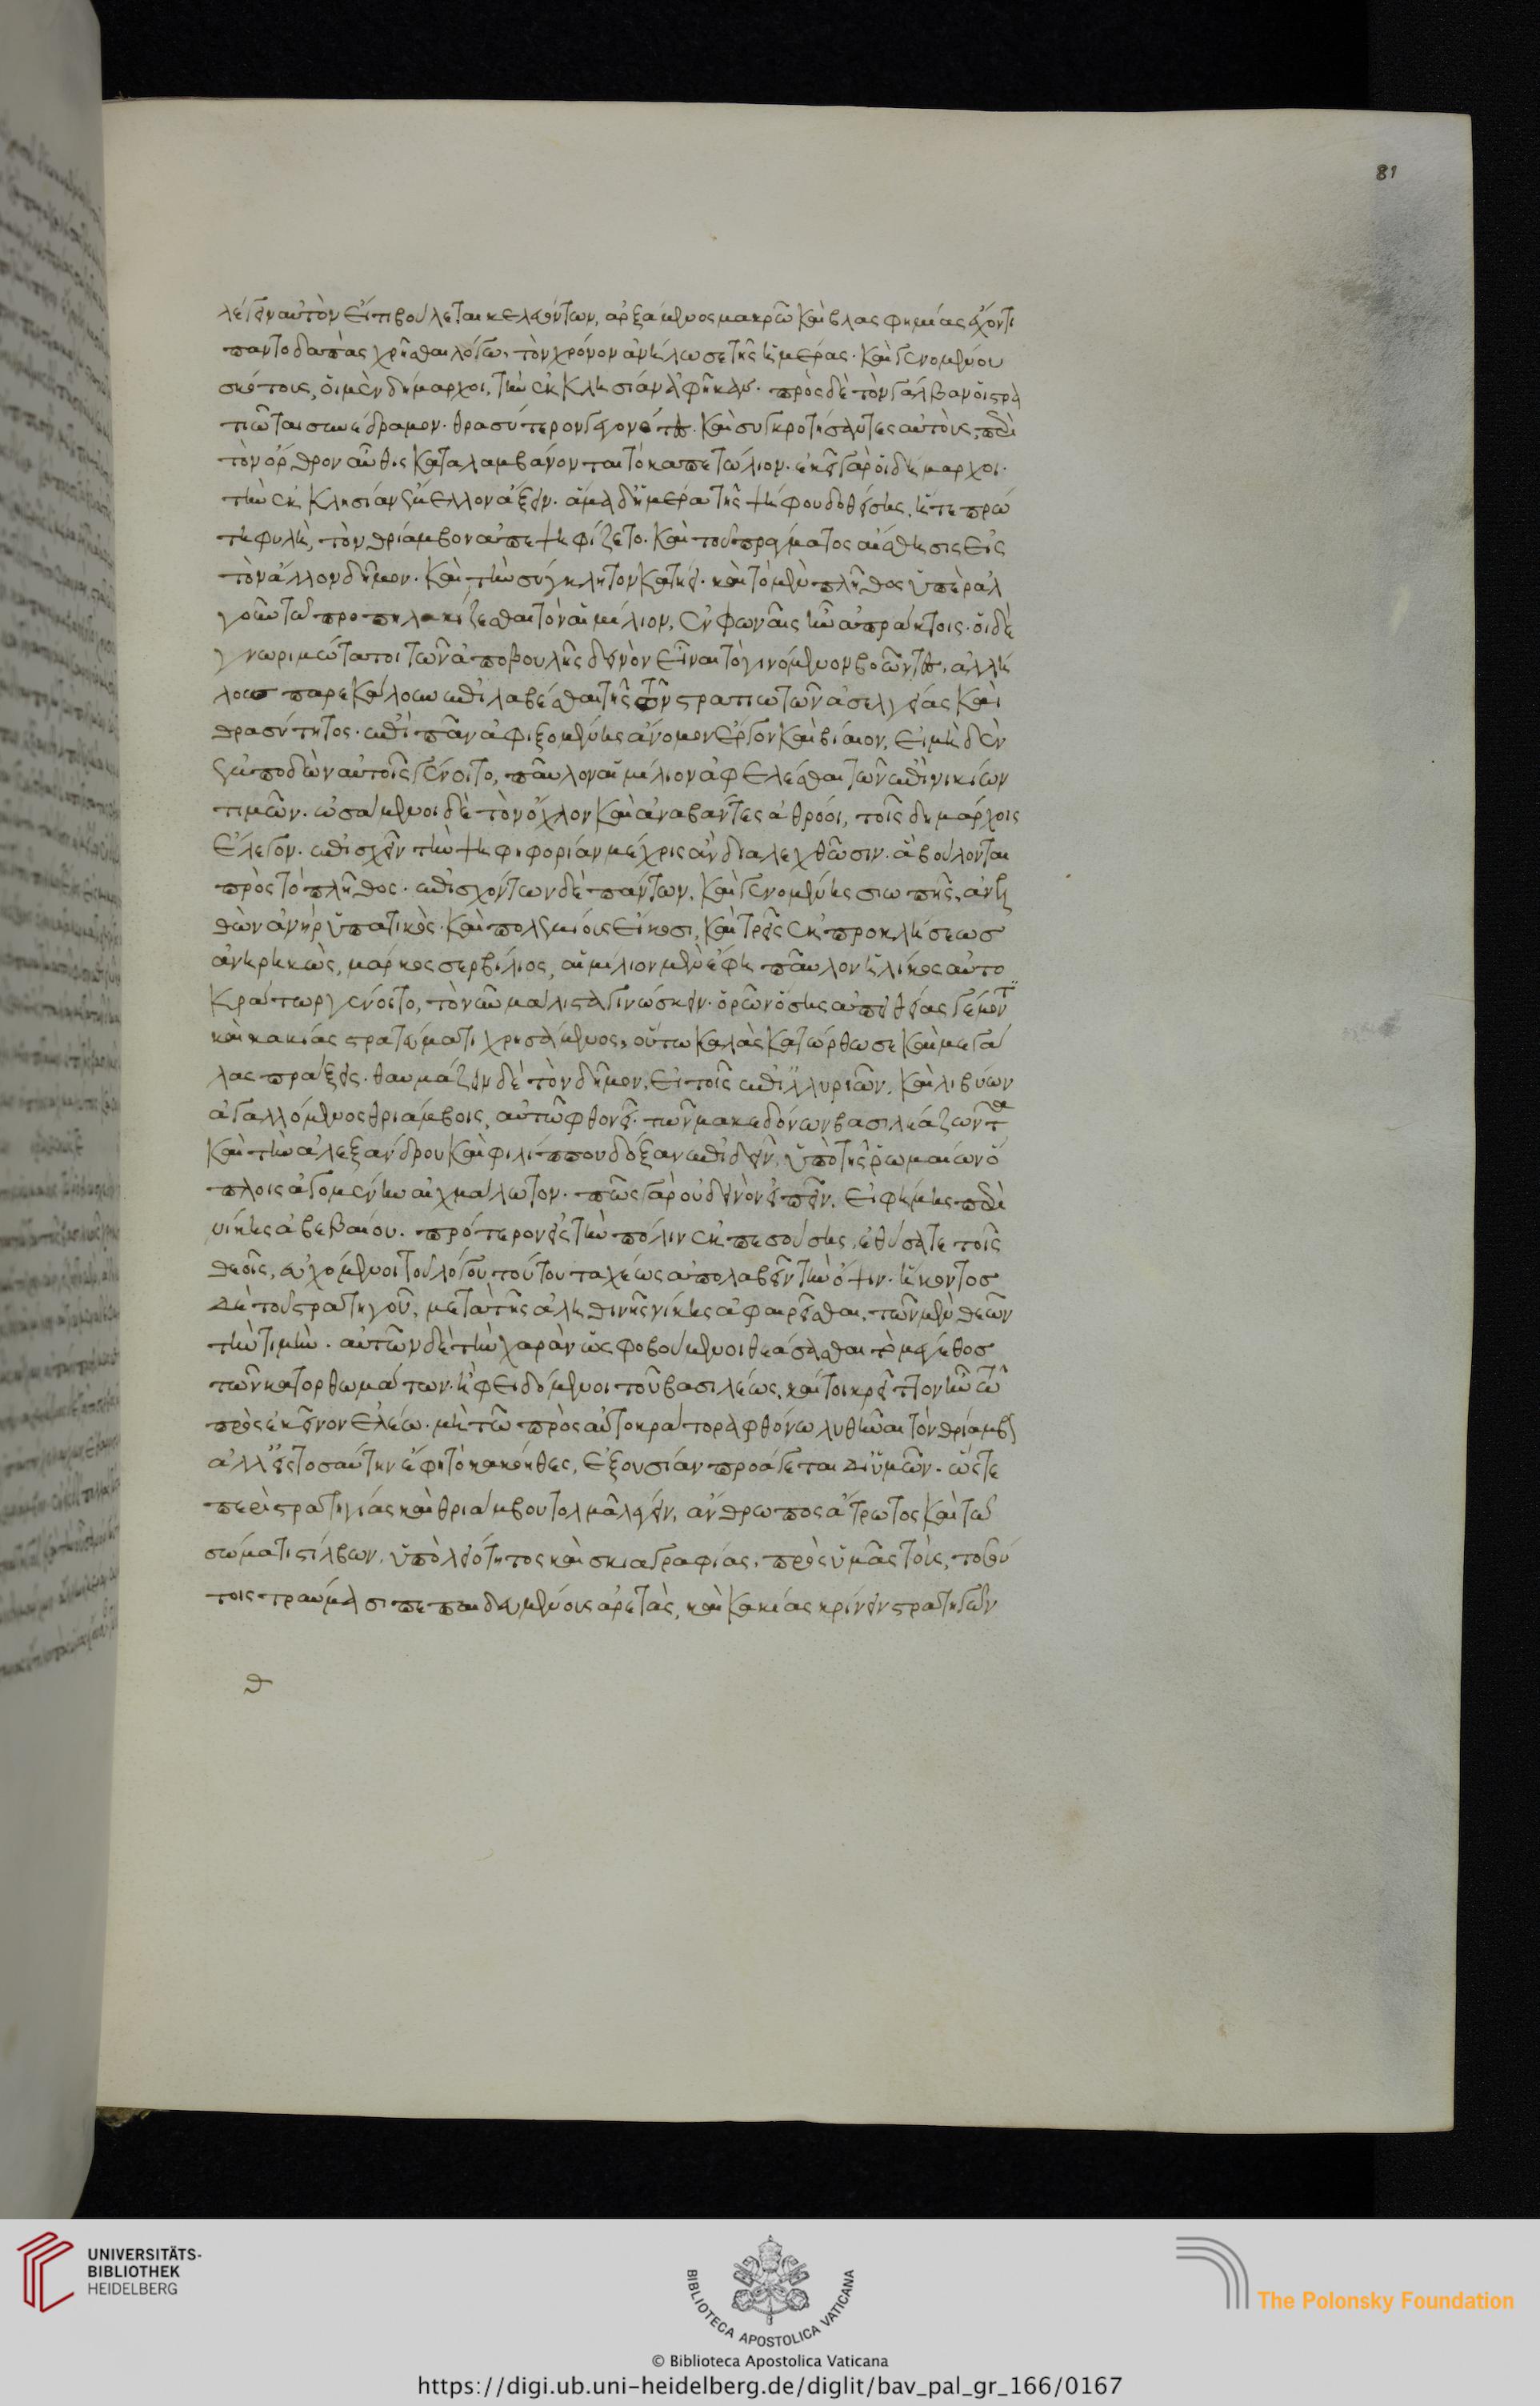 81
λέγειν αὐτὸν εἴ τι βούλεται κελευόντων, ἀρξάμενος μακρῶ καὶ βλασφημίας ἔχοντι
παντοδαπὰς χρῆσθαι λόγω, τὸν χρόνον ἀνήλωσε τῆς ἡμέρας. καὶ γενομένου
σκότους, οἱ μὲν δήμαρχοι, τὴν ἐκκλησίαν ἀφῆκαν. πρὸς δὲ τὸν γάλβαν οἱ στρα
τιῶται συνέδραμον. θρασύτεροι γεγονότες. καὶ συγκροτήσαντες αὐτοὺς, περὶ
τὸν ὄρθρον αὖθις καταλαμβάνονται τὸ καπετώλιον. ἐκεῖ γὰρ οἱ δήμαρχοι.
τὴν ἐκκλησίαν ἔμελλον ἄξειν. ἅμα δ' ἡμέρα τῆς ψήφου δοθείσης, ἥ τε πρώ
τη φυλὴ, τὸν θρίαμβον ἀπεψηφίζετο. καὶ τοῦ πράγματος αἴσθησις εἰς
τὸν ἄλλον δῆμον. καὶ τὴν σύγκλητον κατήει. καὶ τὸ μὲν πλῆθος ὑπεραλ
γοῦν τῶ προπηλακίζεσθαι τὸν αἰμίλιον, ἐν φωναῖς ἦν ἀπράκτοις. οἱ δὲ
γνωριμώτατοι τῶν ἀπὸ βουλῆς δεινὸν εἶναι τὸ γινόμενον βοῶντες, ἀλλή
λους παρεκάλουν ἐπιλαβέσθαι τῆς τῶν στρατιωτῶν ἀσελγείας καὶ
θρασύτητος. ἐπὶ πᾶν ἀφιξομένης ἄνομον ἔργον καὶ βίαιον, εἰ μηδὲν
ἐμποδὼν αὐτοῖς γένοιτο, παῦλον αἰμίλιον ἀφελέσθαι τῶν ἐπινικίων
τιμῶν. ὠσάμενοι δὲ τὸν ὄχλον καὶ ἀναβάντες ἀθρόοι, τοῖς δημάρχοις
ἔλεγον. ἐπισχεῖν τὴν ψηφηφορίαν μέχρις ἂν διαλεχθῶσιν. ἃ βούλονται
πρὸς τὸ πλῆθος. ἐπισχόντων δὲ πάντων. καὶ γενομένης σιωπῆς, ἀνελ
θὼν ἀνὴρ ὑπατικὸς. καὶ πολεμίους εἴκοσι, καὶ τρεῖς ἐκ προκλήσεως
ἀνηρηκὼς, μάρκος σερβίλιος, αἰμίλιον μὲν ἔφη παῦλον ἡλίκος αὐτο
κράτωρ γένοιτο, τὸ νῦν μάλιστα γινώσκειν. ὁρῶν ὅσης ἀπειθείας γέμοντι
καὶ κακίας στρατεύματι χρησάμενος, οὕτω καλὰς κατώρθωσε καὶ μεγά
λας πράξεις. θαυμάζειν δὲ τὸν δῆμον, εἰ τοῖς ἐπ' ἰλλυριῶν. καὶ λιβύων
ἀγαλλόμενος θριάμβοις, αὑτῶ φθονεῖ. τῶν μακεδόνων βασιλέα ζῶντα
καὶ τὴν ἀλεξάνδρου καὶ φιλίππου δόξαν ἐπιδεῖν, ὑπὸ τῆς ῥωμαίων ὅ
πλοις ἀγομένην αἰχμάλωτον. πῶς γὰρ οὐ δεινὸν εἶπεν, εἰ φήμης περὶ
νίκης ἀβεβαίου. πρότερον εἰς τὴν πόλιν ἐκπεσούσης, ἐθύσατε τοῖς
θεοῖς, εὐχόμενοι τοῦ λόγου τούτου ταχέως ἀπολαβεῖν τὴν ὄψιν. ἥκοντος
δὲ τοῦ στρατηγοῦ, μετὰ τῆς ἀληθινῆς νίκης ἀφαιρεῖσθαι, τῶν μὲν θεῶν
τὴν τιμὴν. αὐτῶν δὲ τὴν χαρὰν ὡς φοβούμενοι θεάσασθαι τὸ μέγεθος
τῶν κατορθωμάτων. ἢ φειδόμενοι τοῦ βασιλέως, καίτοι κρεῖττον ἦν τῶ
πρὸς ἐκεῖνον ἐλέω. μὴ τῶ πρὸς αὐτοκράτορα φθόνω λυθῆναι τὸν θρίαμβον
ἀλλ' εἰς τοσαύτην ἔφη τὸ κακόηθες, ἐξουσίαν προάγεται δι' ὑμῶν. ὥστε
περὶ στρατηγίας καὶ θριάμβου τολμᾶ λέγειν, ἄνθρωπος ἄτρωτος καὶ τῶ
σώματι στίλβων, ὑπὸ λειότητος καὶ σκιαγραφίας, πρὸς ὑμᾶς τοὺς, τοσού
τοις τραύμασι πεπαιδευμένους ἀρετὰς, καὶ κακίας κρίνειν στρατηγῶν
UNIVERSITÄTS-
BIBLIOTHEK
HEIDELBERG
BIBLIOTECA APOSTOLICA VATICANA
The Polonsky Foundation
© Biblioteca Apostolica Vaticana
https://digi.ub.uni-heidelberg.de/diglit/bav_pal_gr_166/0167